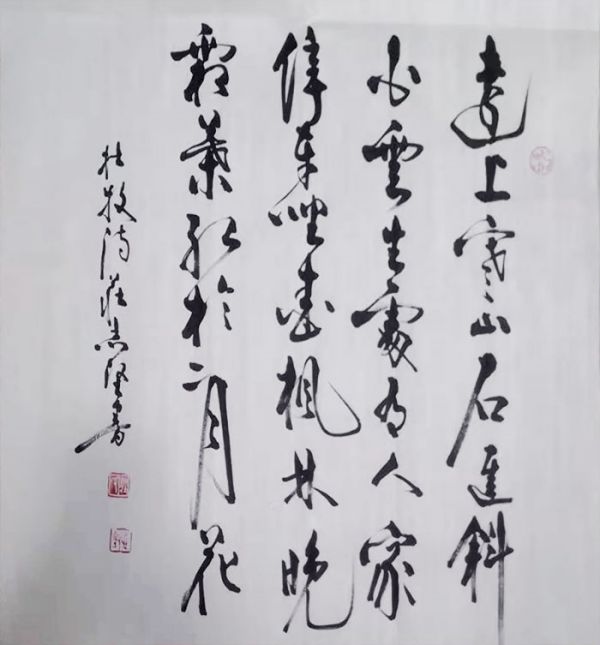 遠上寒山石逕斜
白雲生處有人家
停車坐愛楓林晚
霜葉紅於二月花
杜牧詩莊志隆書